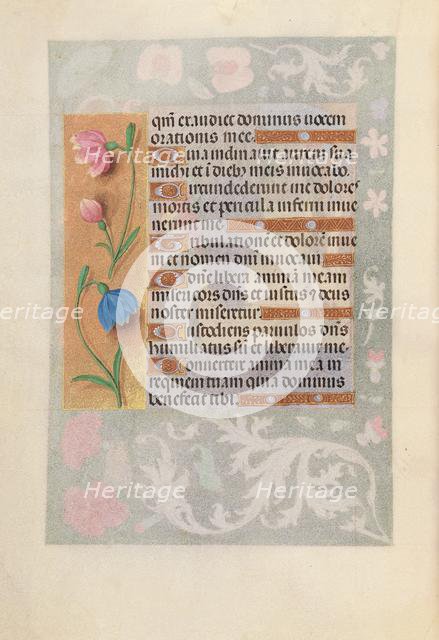 qm̃ exaudiet dominus uocem
orationis mee.
uia inclinauit aurem suā
michi et ī dieb9 meis inuocabo.
ircundederunt me dolores
mortis et pericula inferni inue
nerunt me
ribulationē et dolorē inue
ni et nomen dñi inuocaui
dñe libera animā meam
misericors dñs et iustus? deus
noster miseretur.
ustodiens paruulos dñs
humiliatus sū et liberauit me.
onuertere anima mea in
requiem tuam quia dominus
benefecit tibi.
Heritage
Heritage
Heritage
Heritage
Heritage
Heritage
Heritage